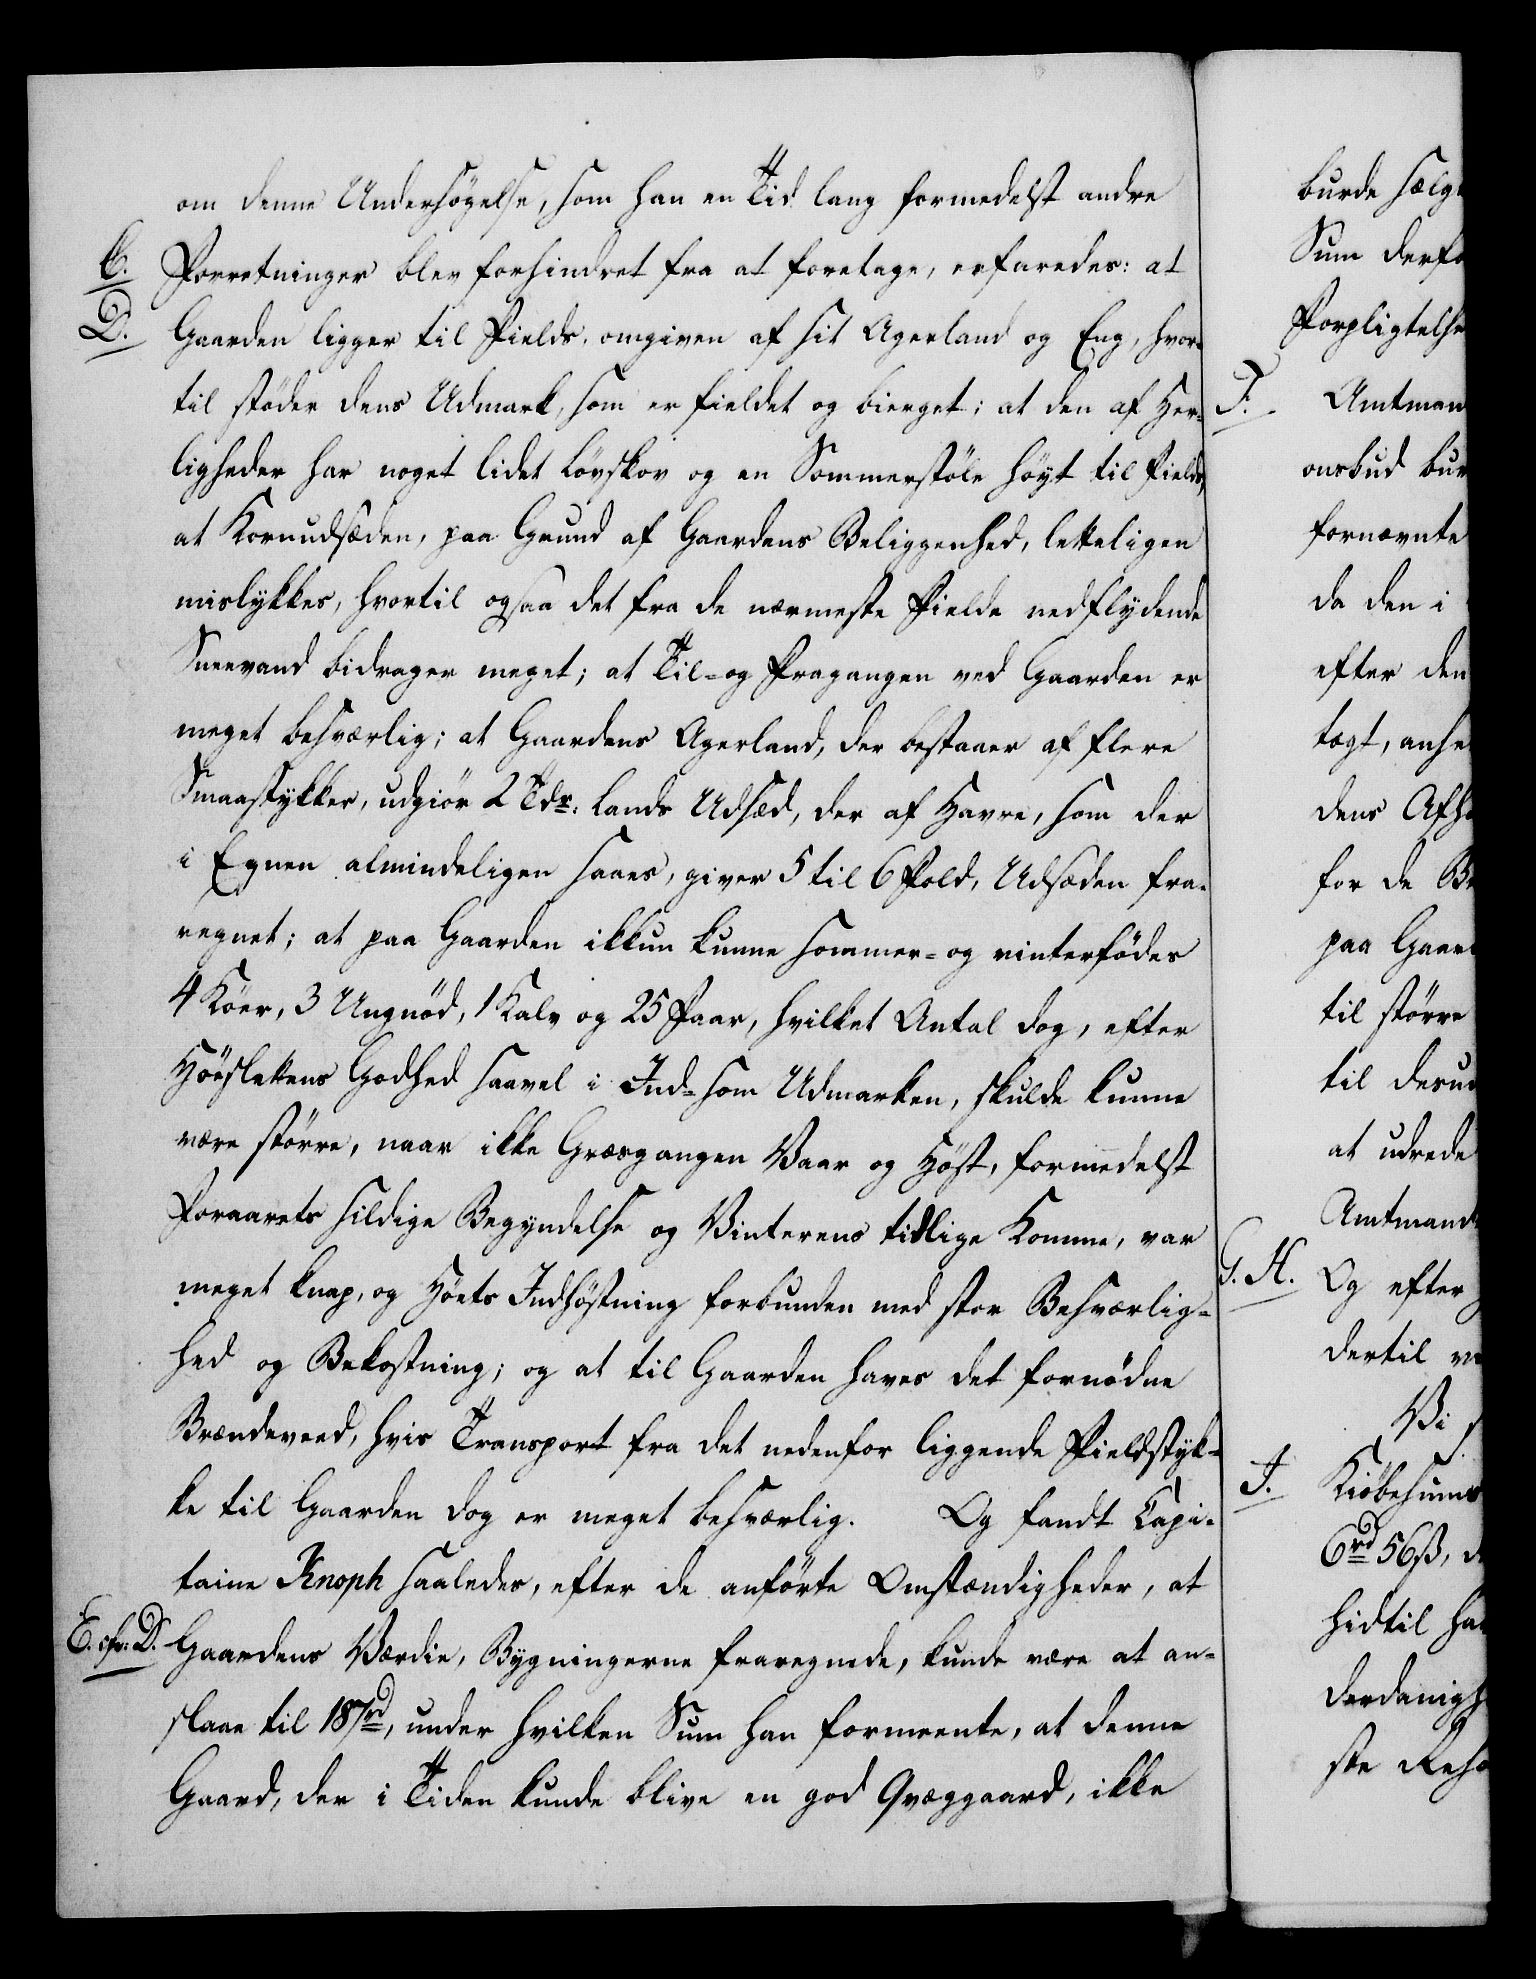 om denne Undersögelse, som han en Tid lang formedelst andre
C. Forretninger blev forhindret fra at foretage, erfaredes: at
D. Gaarden ligger til Fields, omgiven af sit Agerland og Eng, hvor-
til stöder dens Udmark, som er fieldet og bierget; at den af Her-
ligheder har noget lidet Lövskov og en Sommerstöle höyt til Fields,
at Kornudsæden, paa Grund af Gaardens Beliggenhed, letteligen
mislykkes, hvortil ogsaa det fra de nærmeste Fielde nedflydende
Sneevand bidrager meget; at Til- og Fragangen ved Gaarden er
meget besværlig; at Gaardens Agerland, der bestaaer af flere
Smaastykker, udgiör 2 Tdr. Lands Udsæd, der af Havre, som der
i Egnen almindeligen saaes, giver 5 til 6 Fold, Udsæden fra-
regnet; at paa Gaarden ikkun kunne sommer- og vinterfödes
4 Köer, 3 Ungnöd, 1 Kalv og 25 Faar, hvilket Antal dog, efter
Höeslettens Godhed saavel i Ind- som Udmarken, skulde kunne
være större, naar ikke Græsgangen Vaar og Höst, formedelst
Foraarets sildige Begyndelse og Vinterens tidlige Komme, var
meget knap, og Höets Indhöstning forbunden med stor Besværlig-
hed og Bekostning; og at til Gaarden haves det fornödne
Brændeveed, hvis Transport fra det nedenfor liggende Fieldstyk-
ke til Gaarden dog er meget besværlig. Og fandt Capi-
taine Knoph saaledes, efter de anförte Omstændigheder, at
E. cfr. D. Gaardens Værdie, Bygningerne fraregnede, kunde være at an-
slaae til 187rd, under hvilken Sum han formeente, at denne
Gaard, der i Tiden kunde blive en god Qvæggaard, ikke
burde sælg
Sum derfo
Forpligtelse
F. Amtman
onsbud bur
fornævnte
da den i
efter den
togt, anse
dens Afh
for de B
paa Gaar
til större
til desu
at udrede
Amtmand
G. H. Og efter
dertil
Vi
I. Kiöbesum
6rd 56ß, d
hidtil ha
derdanigh
ste Reso